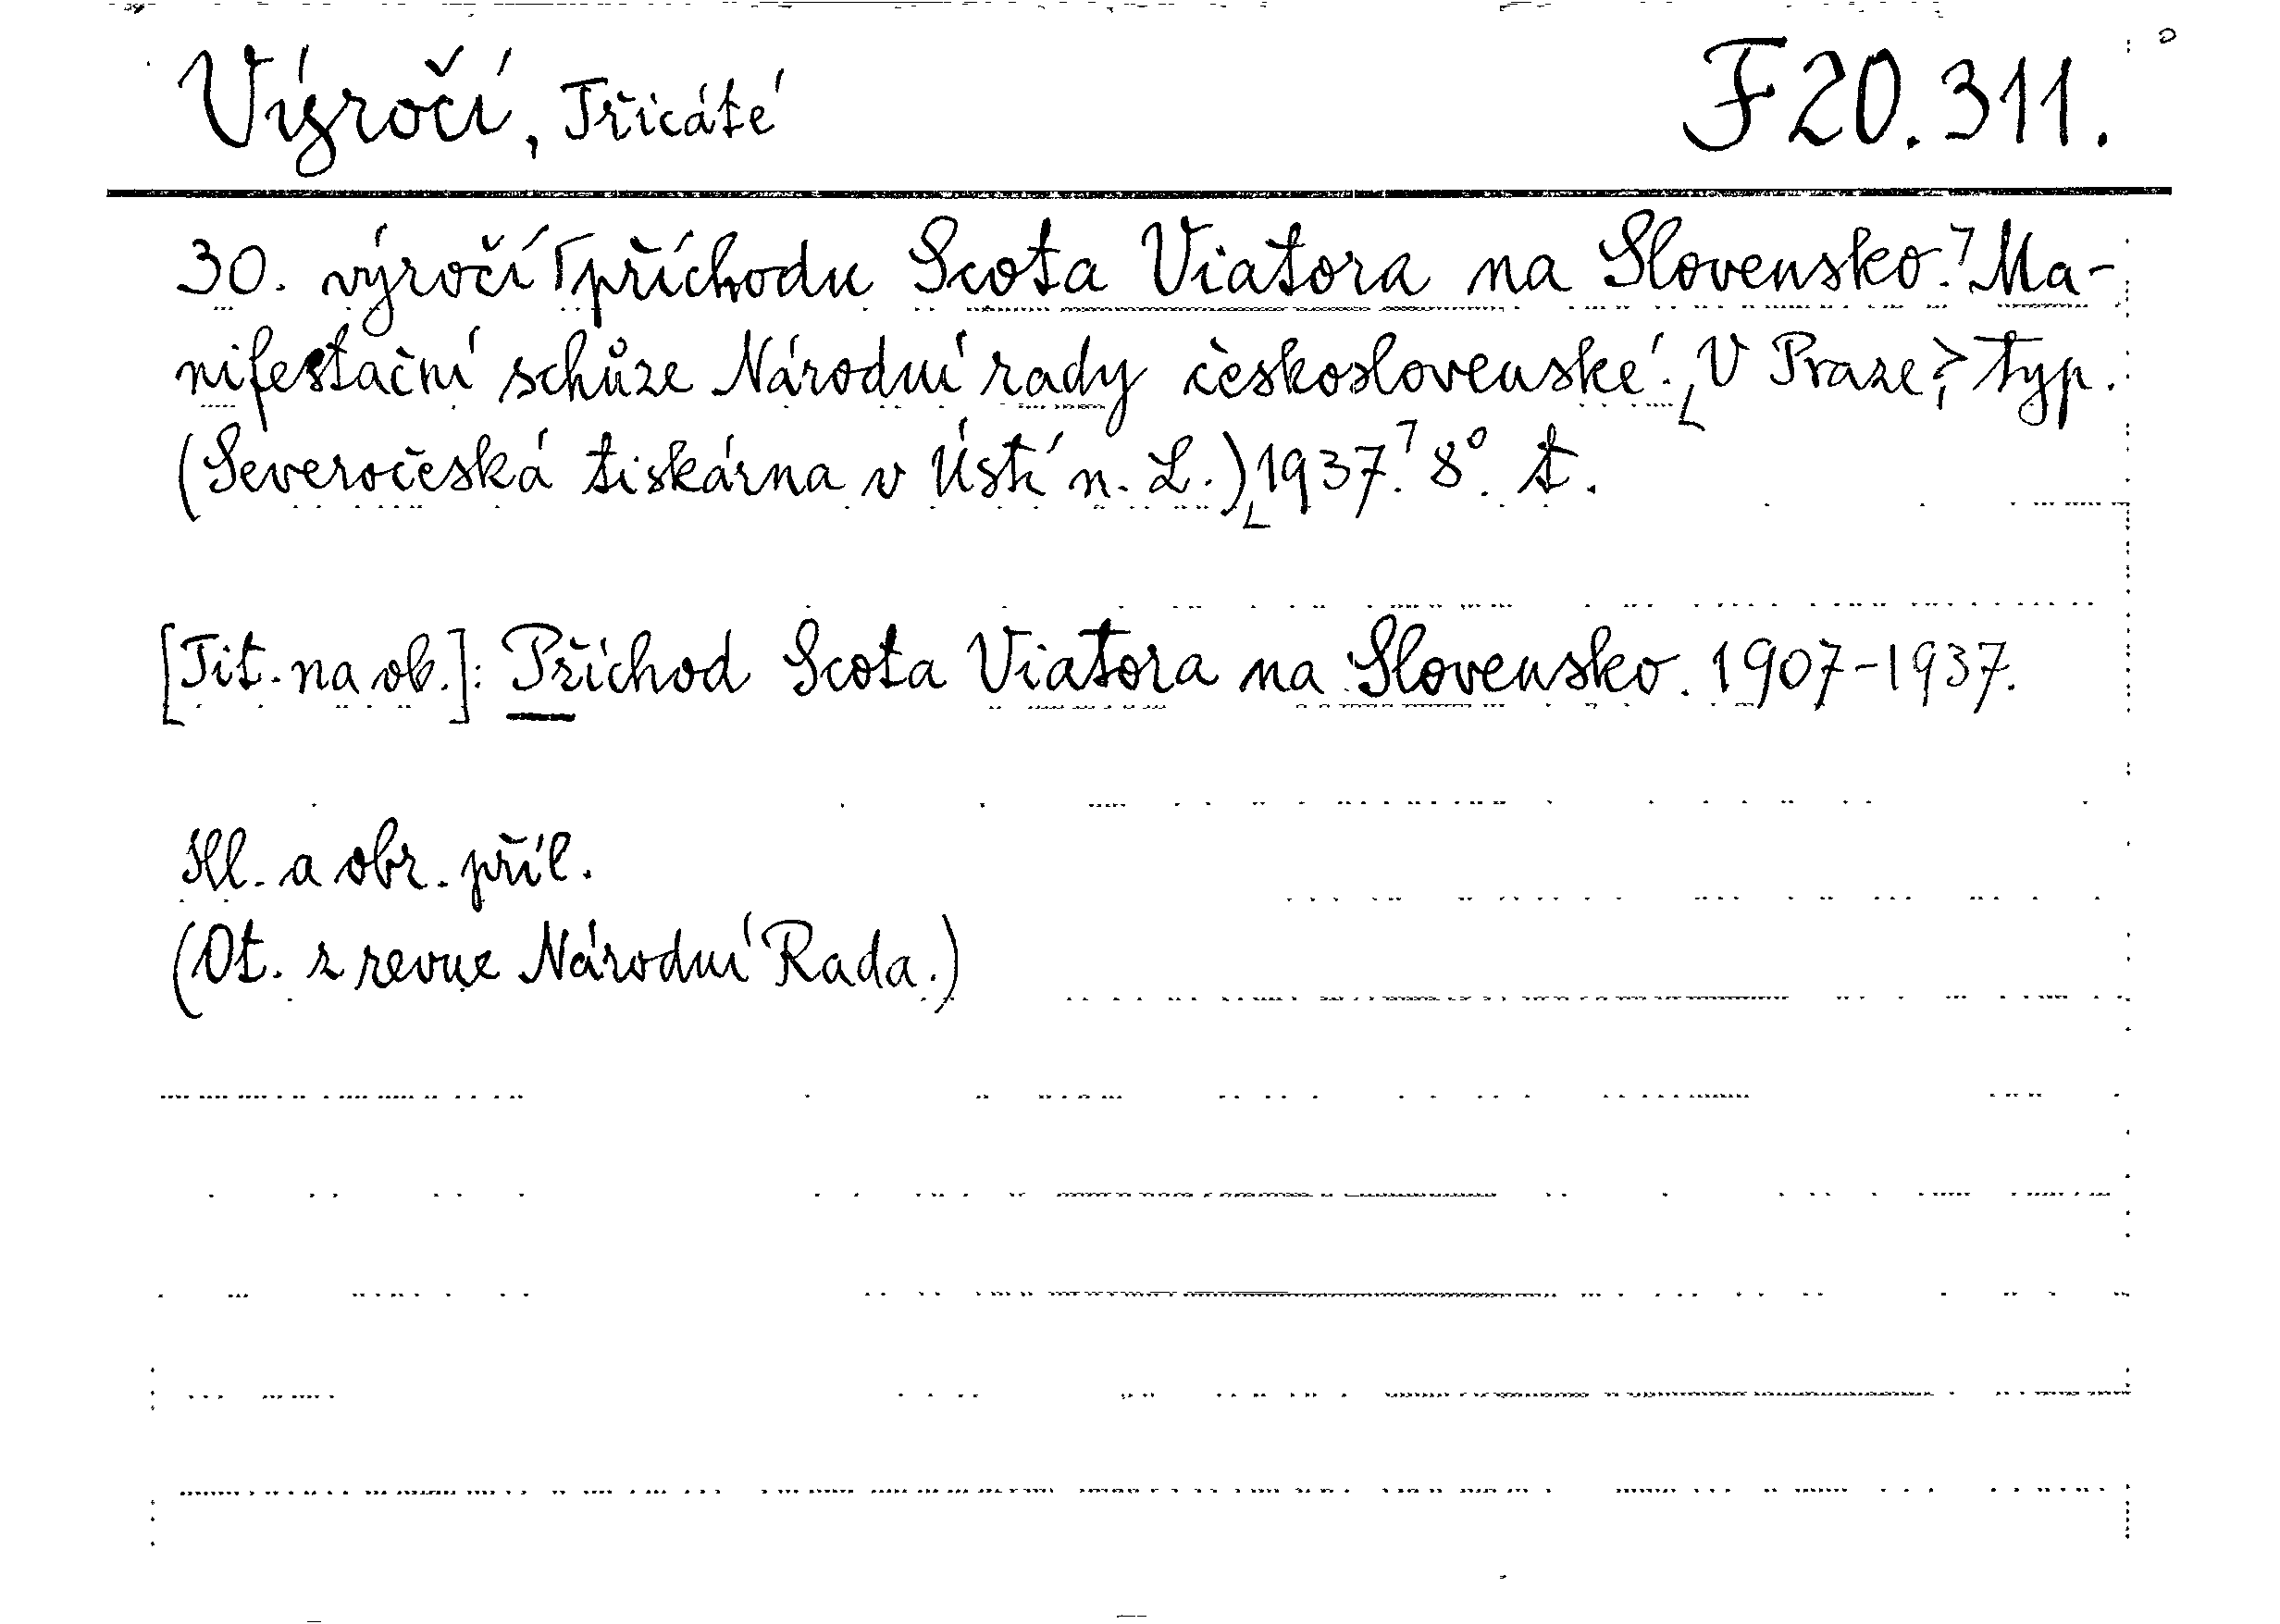 Výročí, Třicáté
F 20.311.
30. výročí ⌈příchodu Scota Viatora na Slovensko.⌉ Ma-
nifestační schůze Národní rady československé. ⌊V Praze, typ.
(Severočeská tiskárna v Ústí n. L.) ⌊1937.⌉ 8°. t.
[Tit. na ob.]: Příchod Scota Viatora na Slovensko. 1907-1937.
Ill. a obr. příl.
(Ot. z revue Národní Rada.)